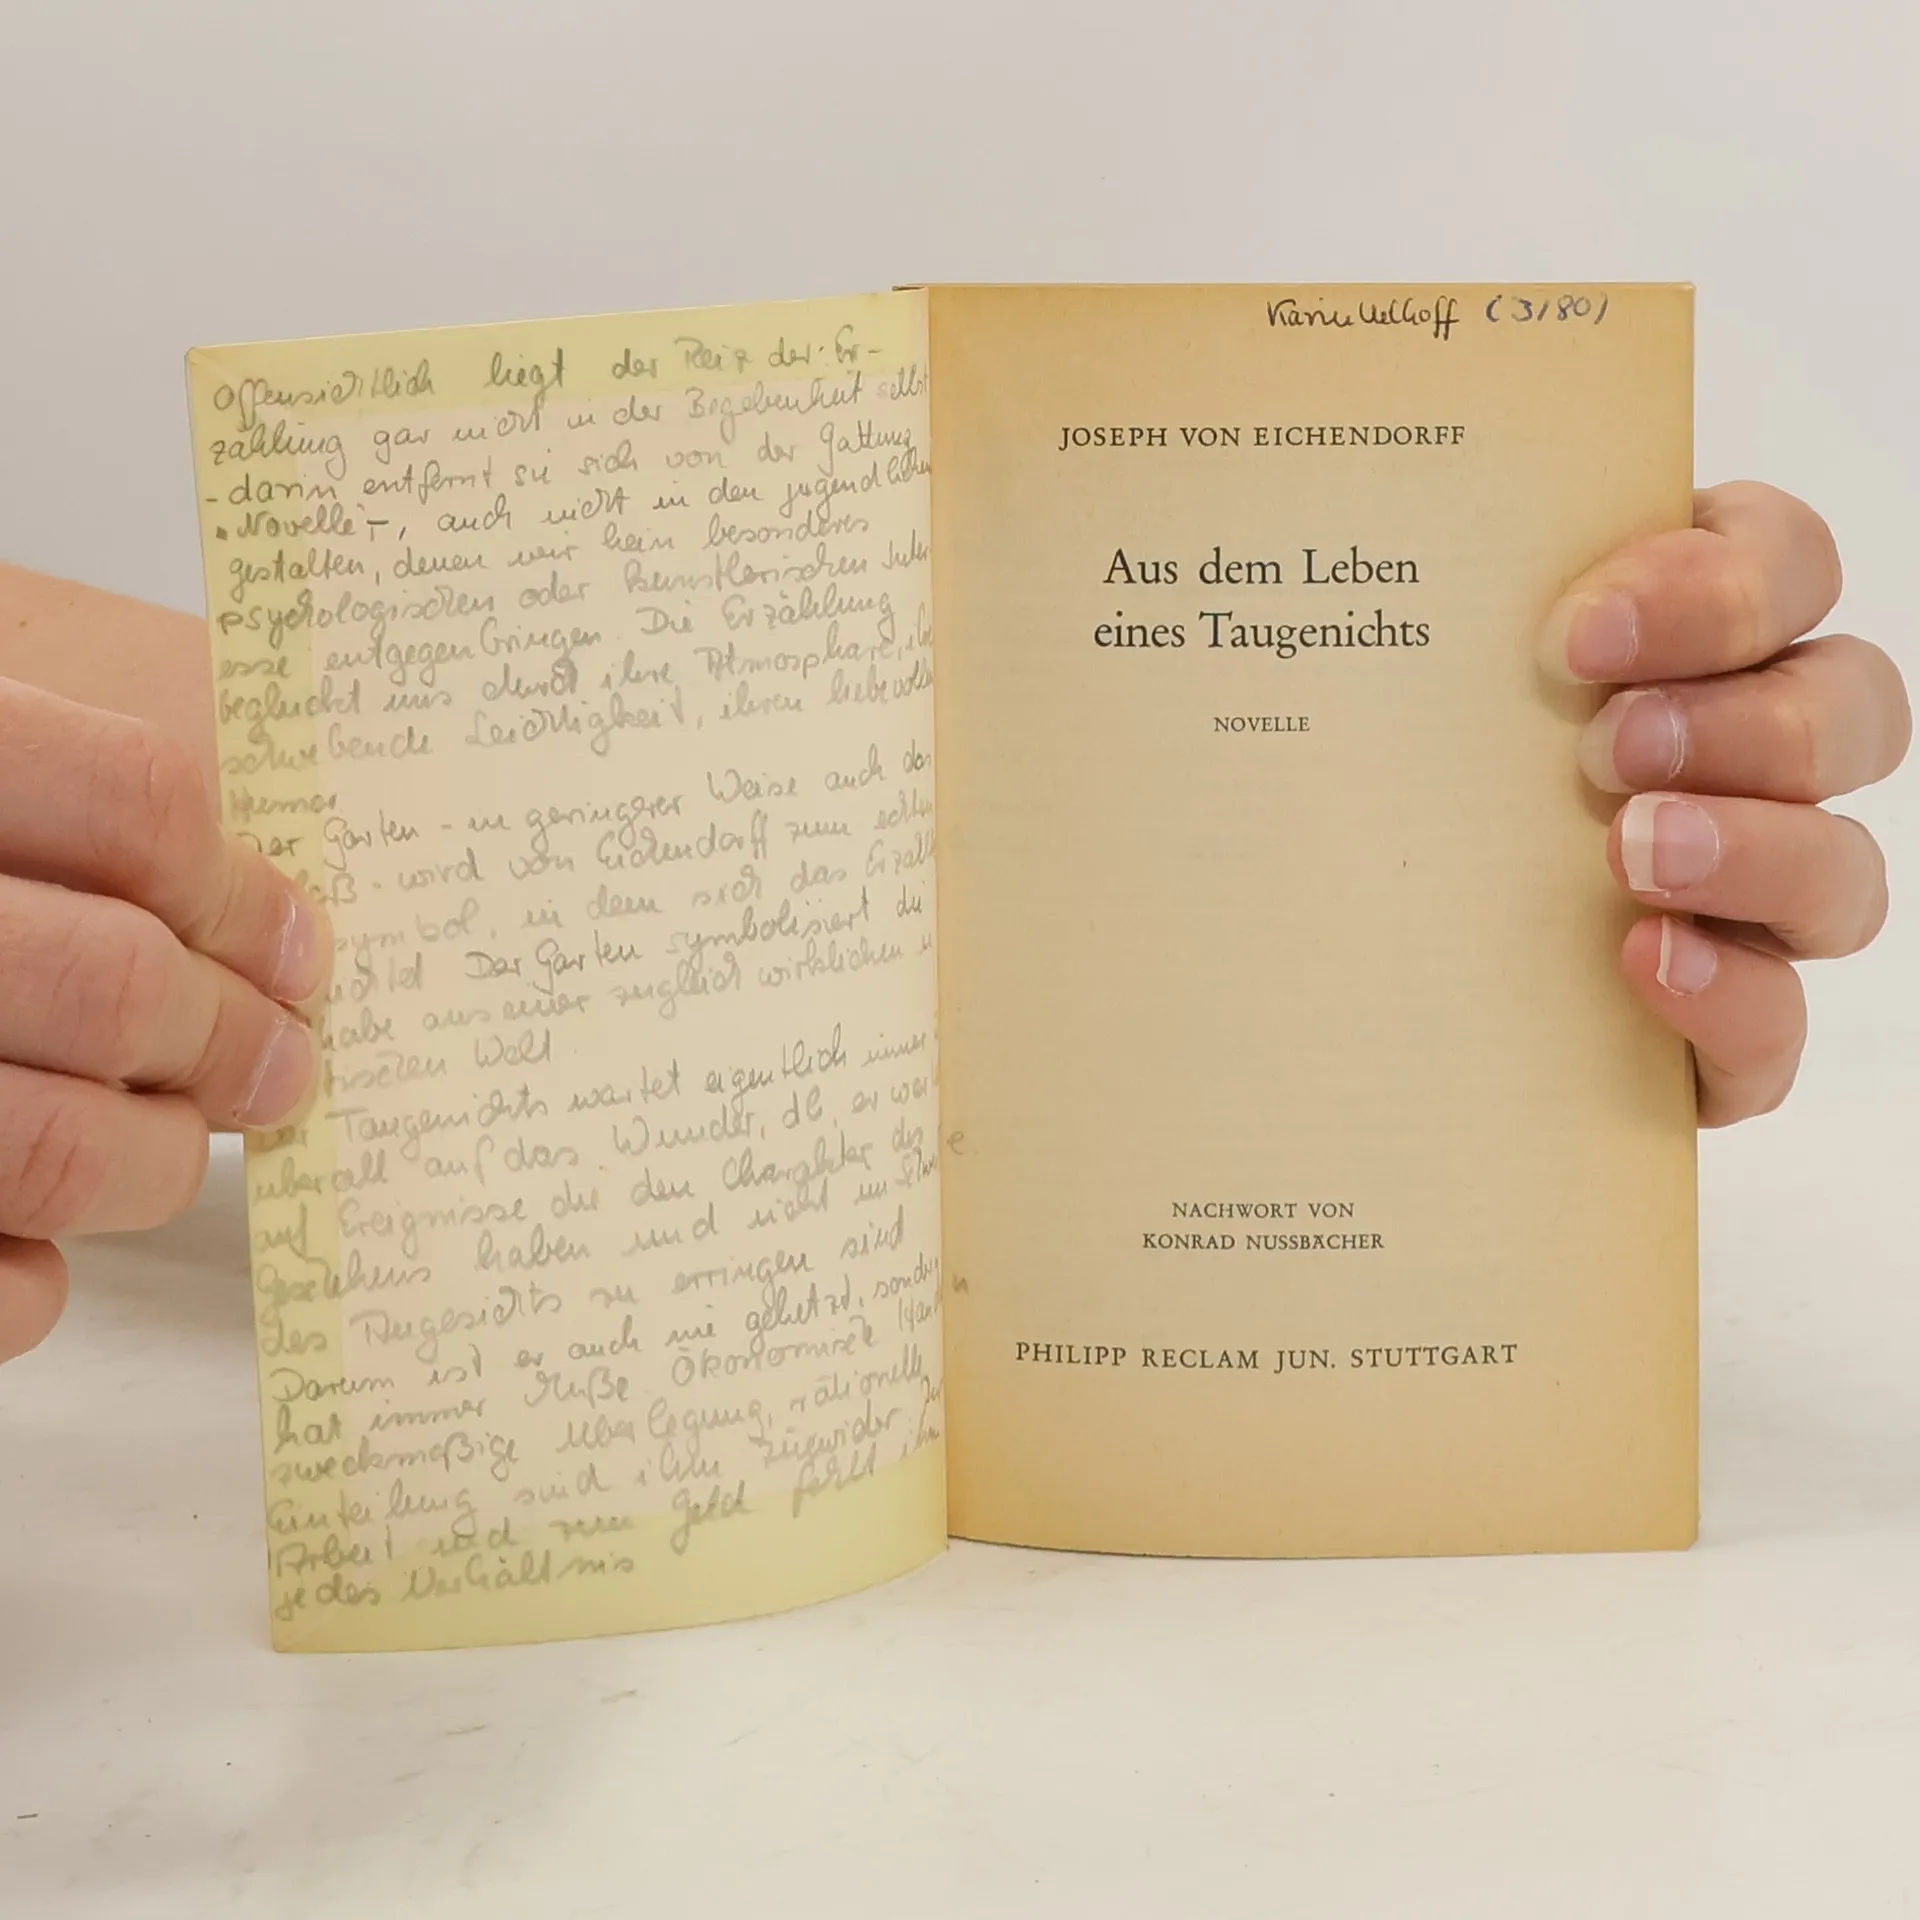 Offensichtlich liegt der Reiz der Er-
zählung gar nicht in der Begebenheit selbst
- darin entfernt sie sich von der Gattung
"Novelle" -, auch nicht in den jugendlichen
gestalten, denen wir kein besonderes
psychologischen oder künstlerischen Inter
esse entgegenbringen. Die Erzählung
beglückt uns durch ihre Atmosphäre, ihre
schwebende Leichtigkeit, ihren liebevollen
Humor
Der Garten - in geringerer Weise auch das
- wird von Eichendorff zum echten
symbol, in dem sich das Erzähl
Der Garten symbolisiert die
habe aus einer zugleich wirklichen u
tischen Welt
Taugenichts wartet eigentlich immer
überall auf das Wunder, dh, er war e.
auf Ereignisse die den Charakter des
Geschehens haben und nicht im Schwe
des Angesichts zu erringen sind
Darum ist er auch nie gehetzt, sondern
hat immer Muße. Ökonomisch Hand
zweckmäßige Überlegung, rationelle
Einteilung sind ihm zuwider. Zur
Arbeit und zum Geld fehlt ihm
jedes Verhältnis
(3/80)
JOSEPH VON EICHENDORFF
Aus dem Leben
eines Taugenichts
NOVELLE
NACHWORT VON
KONRAD NUSSBÄCHER
PHILIPP RECLAM JUN. STUTTGART